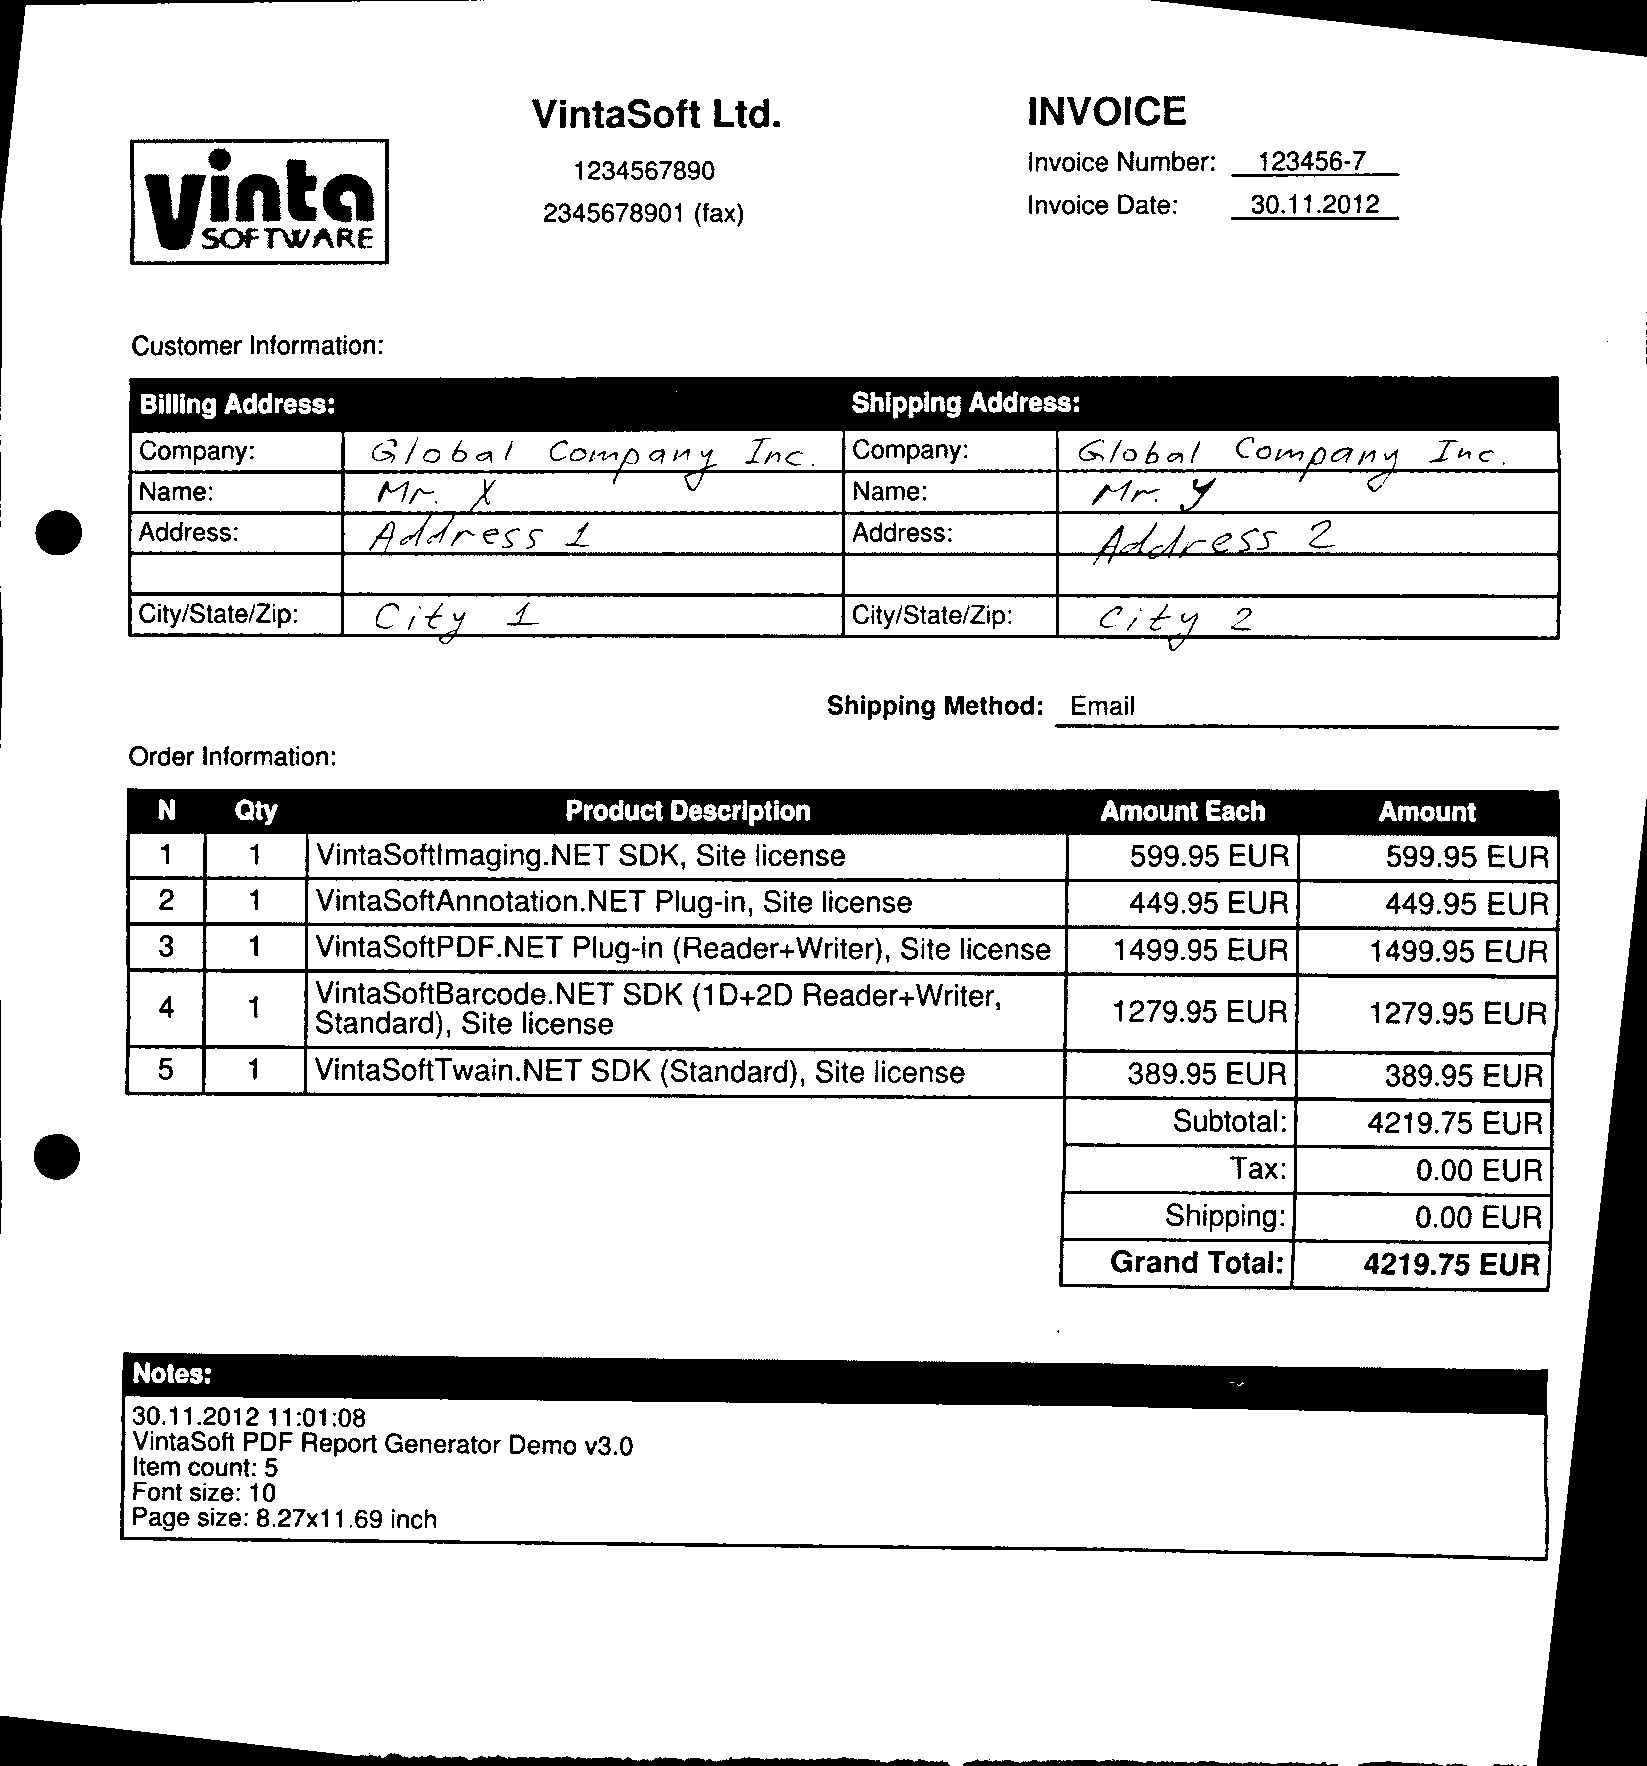 vinta
SOFTWARE
VintaSoft Ltd.
1234567890
2345678901 (fax)
INVOICE
Invoice Number: 123456-7
Invoice Date: 30.11.2012
Customer Information:
Billing Address: Shipping Address:
Company: Global Company Inc. Company: Global Company Inc.
Name: Mr. X Name: Mr. Y
Address: Address 1 Address: Address 2
City/State/Zip: City 1 City/State/Zip: City 2
Shipping Method: Email
Order Information:
N Qty Product Description Amount Each Amount
1 1 VintaSoftImaging.NET SDK, Site license 599.95 EUR 599.95 EUR
2 1 VintaSoftAnnotation.NET Plug-in, Site license 449.95 EUR 449.95 EUR
3 1 VintaSoftPDF.NET Plug-in (Reader+Writer), Site license 1499.95 EUR 1499.95 EUR
4 1 VintaSoftBarcode.NET SDK (1D+2D Reader+Writer, 1279.95 EUR 1279.95 EUR
Standard), Site license
5 1 VintaSoftTwain.NET SDK (Standard), Site license 389.95 EUR 389.95 EUR
Subtotal: 4219.75 EUR
Tax: 0.00 EUR
Shipping: 0.00 EUR
Grand Total: 4219.75 EUR
Notes:
30.11.2012 11:01:08
VintaSoft PDF Report Generator Demo v3.0
Item count: 5
Font size: 10
Page size: 8.27x11.69 inch